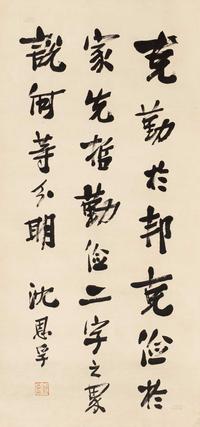 克勤於邦克儉於
家先哲勤儉二字之界
說何等分明
沈恩孚